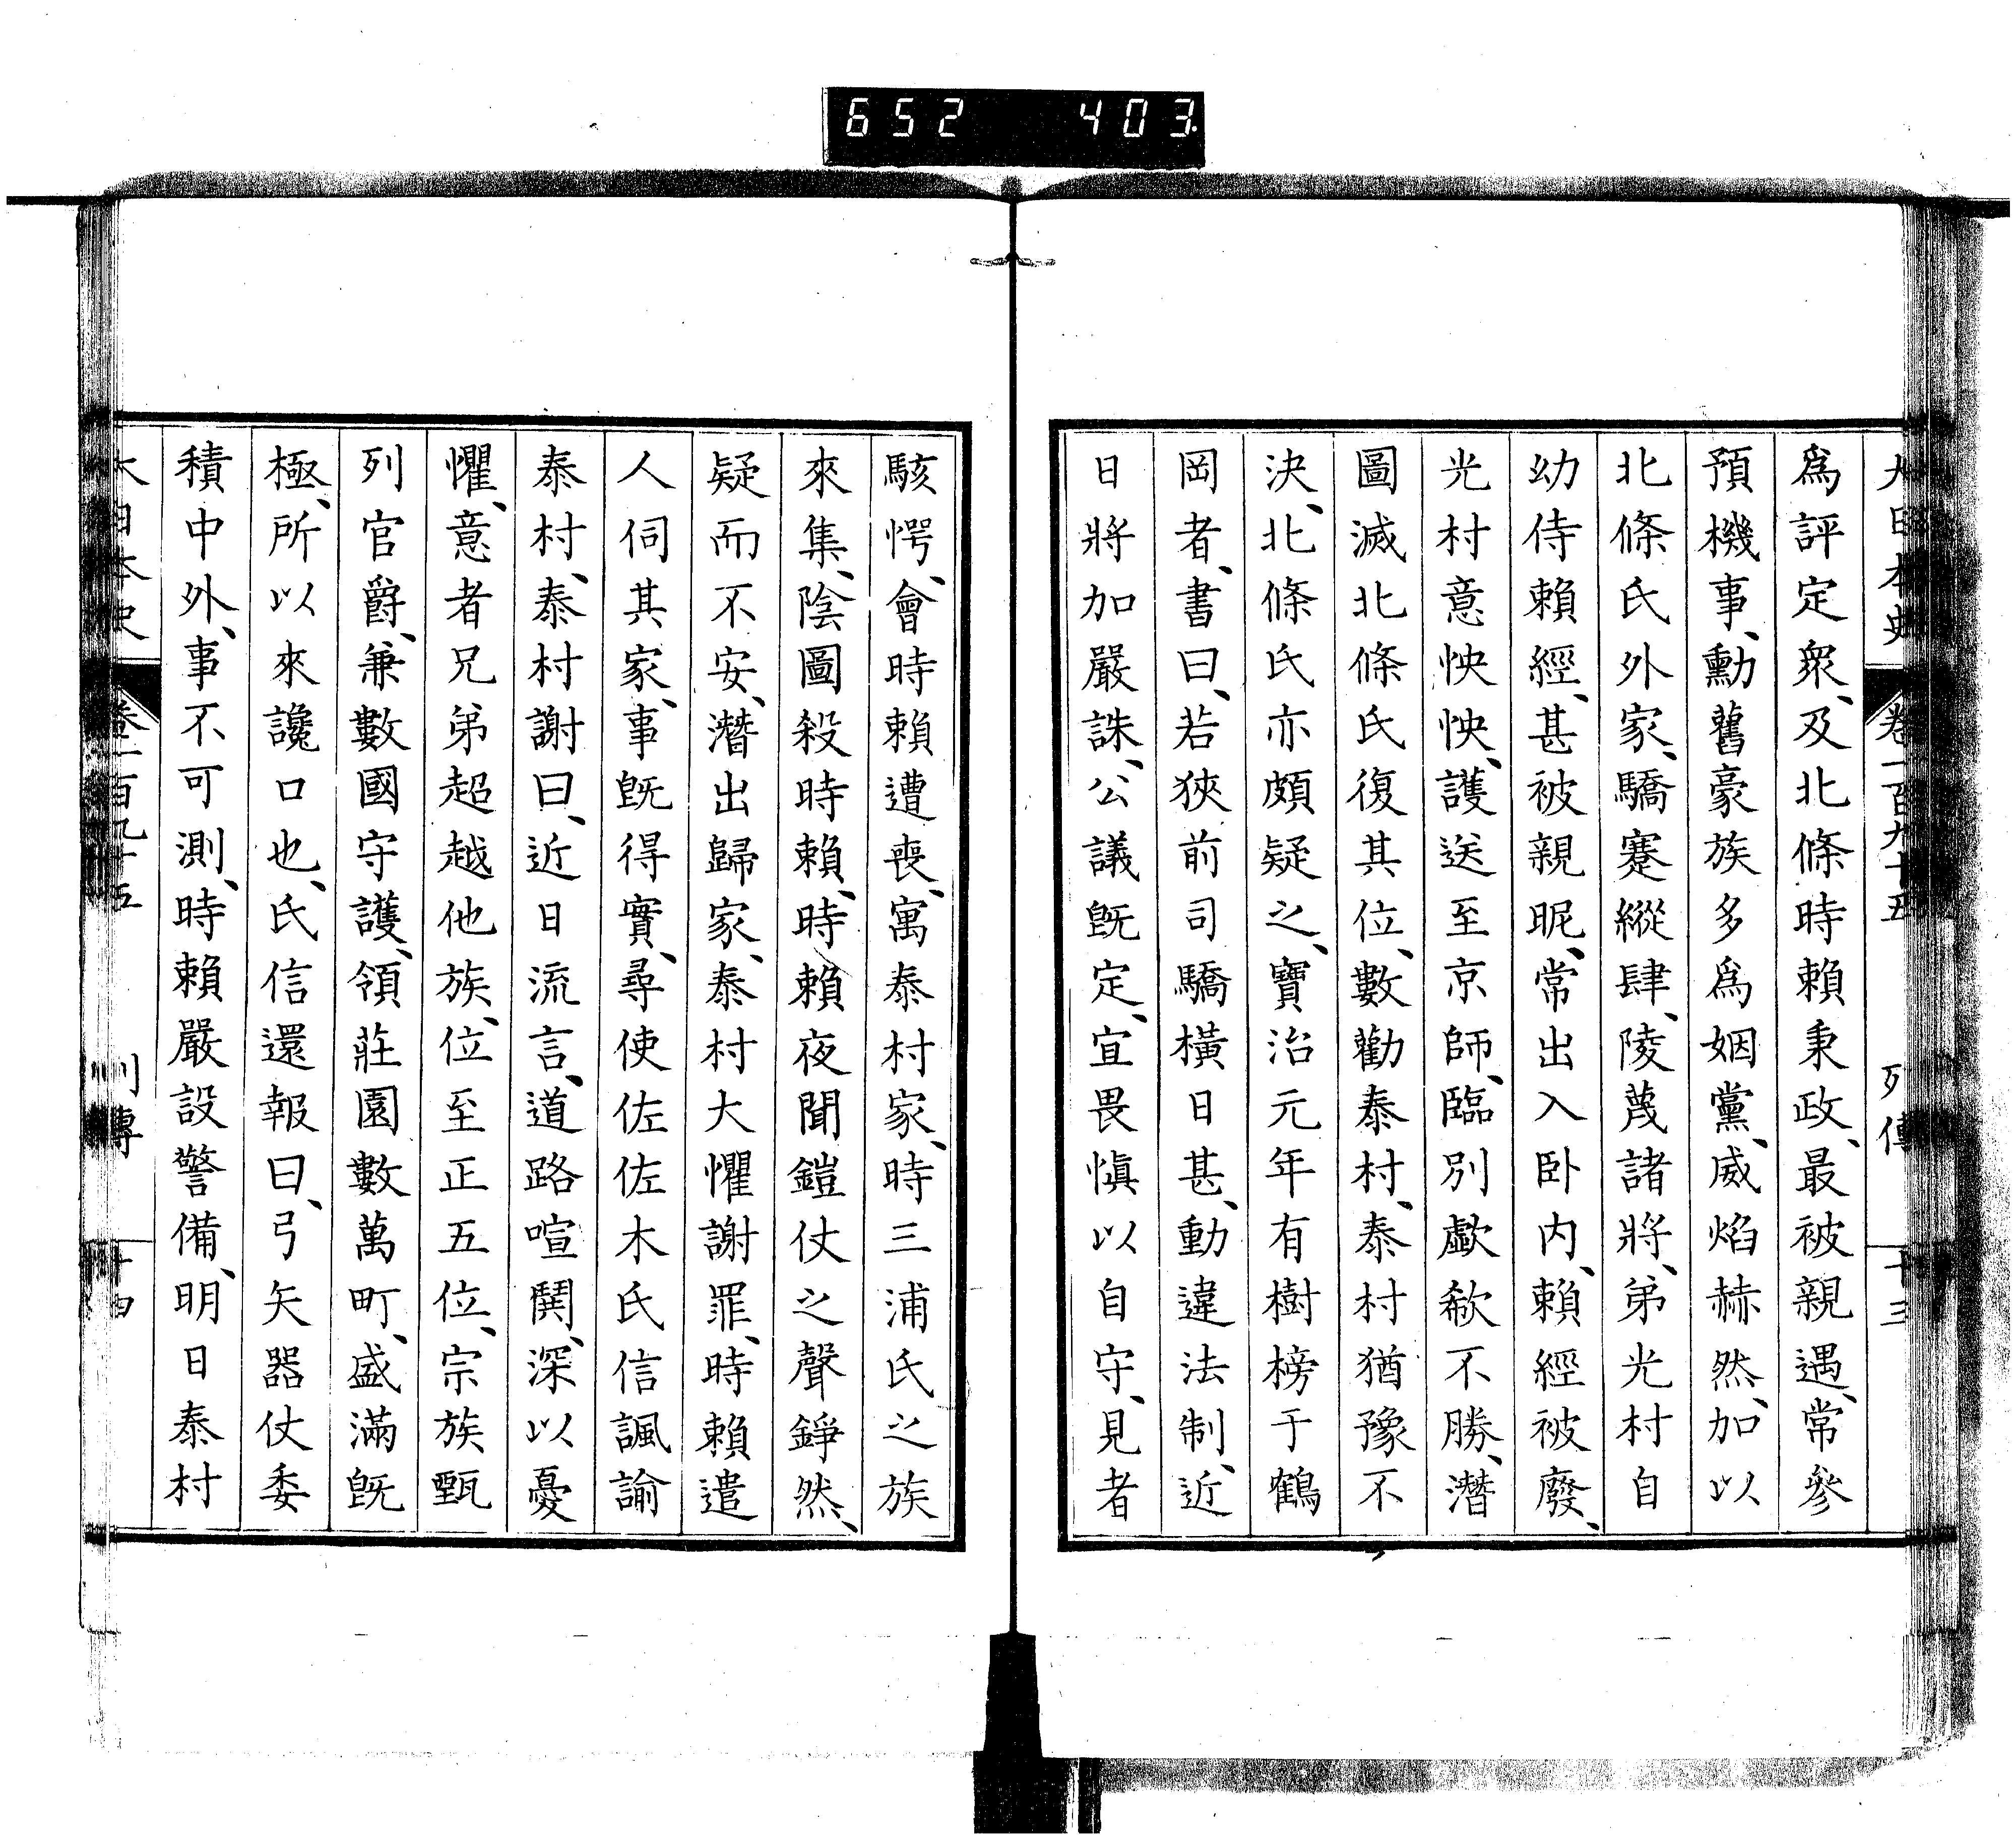 652 403
大日本史 卷一百九十五 列傳 十三
爲評定衆、及北條時賴秉政、最被親遇、常參
預機事、勳舊豪族多爲姻黨、威焰赫然、加以
北條氏外家、驕蹇縱肆、陵蔑諸將、弟光村自
幼侍賴經、甚被親昵、常出入卧内、賴經被廢、
光村意怏怏、護送至京師、臨別歔欷不勝、潛
圖滅北條氏復其位、數勸泰村、泰村猶豫不
決、北條氏亦頗疑之、寶治元年有樹榜于鶴
岡者、書曰、若狹前司驕橫日甚、動違法制、近
日將加嚴誅、公議旣定、宜畏愼以自守、見者
駭愕、會時賴遭喪、寓泰村家、時三浦氏之族
來集、陰圖殺時賴、時賴夜聞鎧仗之聲錚然、
疑而不安、潛出歸家、泰村大懼謝罪、時賴遣
人伺其家、事旣得實、尋使佐佐木氏信諷諭
泰村、泰村謝曰、近日流言、道路喧鬨、深以憂
懼、意者兄弟超越他族、位至正五位、宗族甄
列官爵、兼數國守護、領莊園數萬町、盛滿旣
極、所以來讒口也、氏信還報曰、弓矢器仗委
積中外、事不可測、時賴嚴設警備、明日泰村
大日本史 卷一百九十五 列傳 十四